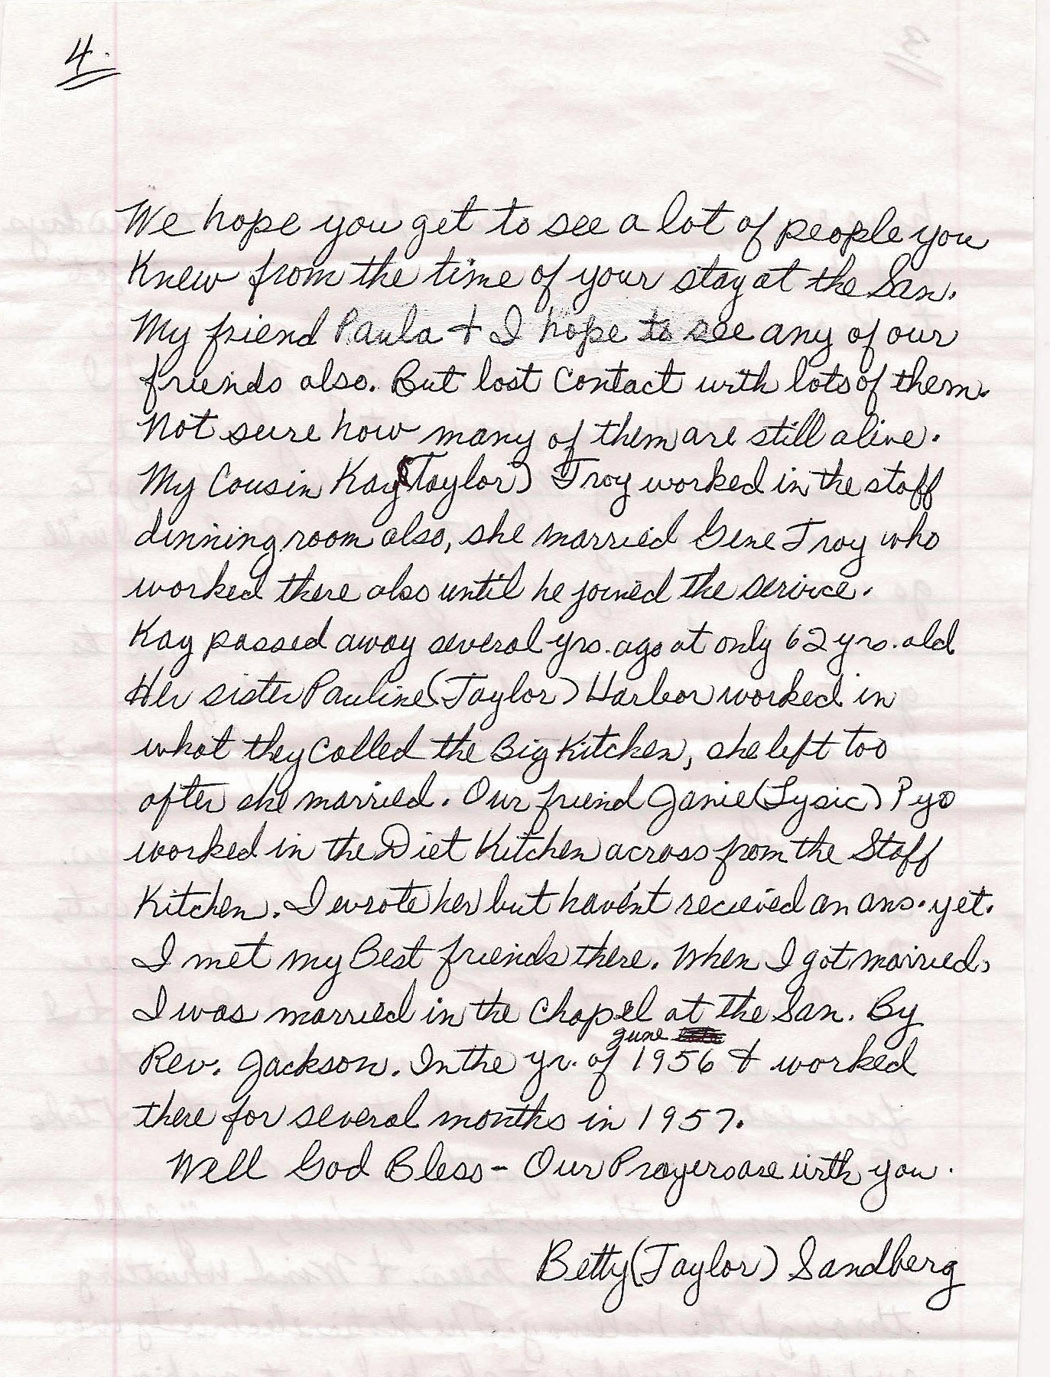 4.
We hope you get to see a lot of people you
Knew from the time of your stay at the San.
My friend Paula + I hope to see any of our
friends also. But lost Contact with lots of them.
Not sure how many of them are still alive.
My Cousin Kay (Taylor) Troy worked in the staff
dinning room also, she married Gene Troy who
worked there also until he joined the service.
Kay passed away several yrs. ago at only 62 yrs. old
Her sister Pauline (Taylor) Harbor worked in
what they Called the Big Kitchen, she left too
after she married. Our friend Janie (Lysic) Pyo
worked in the Diet Kitchen across from the Staff
Kitchen. I wrote her but haven't recieved an ans. yet.
I met my Best friends there. When I got married,
I was married in the Chapel at the San. By
june
Rev. Jackson. In the yr. of 1956 & worked
there for several months in 1957.
Well God Bless - Our Prayers are with you.
Betty (Taylor) Sandberg